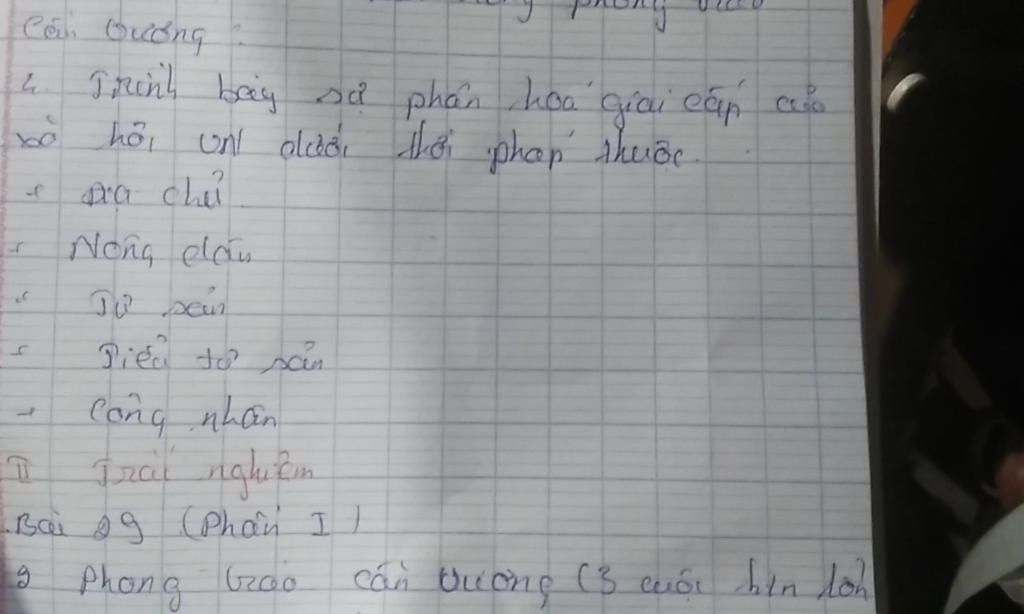 phong trào
Cần Vương :
4. Trình bày sự phân hoá giai cấp của
xã hội VN dưới thời pháp thuộc.
- Địa chủ
- Nông dân
- Tư sản
- Tiểu tư sản
- Công nhân
II Trắc nghiệm
Bài 29 (Phần I)
Phong trào cần vương (3 cuộc k/n lớn